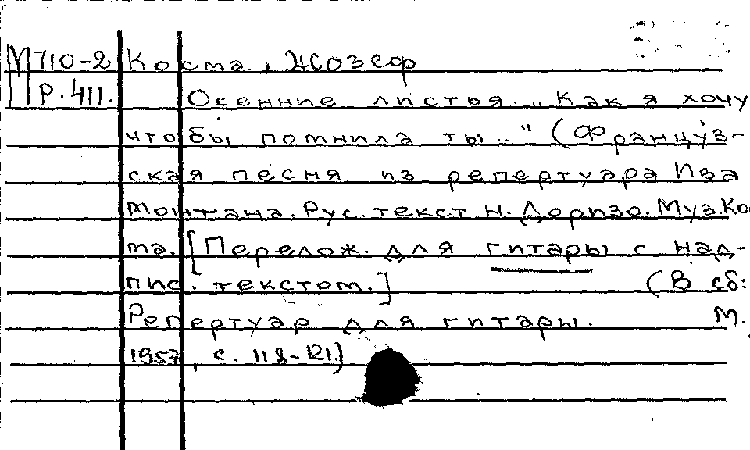 М710-2 Косма, Жозеф
Р.411. Осенние листья. "Как я хочу
чтобы помнила ты.." (Француз-
ская песня из репертуара Ива
Монтана. Рус. текст Н. Доризо. Муз. Кос
ма. [Перелож. для гитары с над-
пис. текстом.] (В сб:
Репертуар для гитары. М.
1957, с. 118-121)